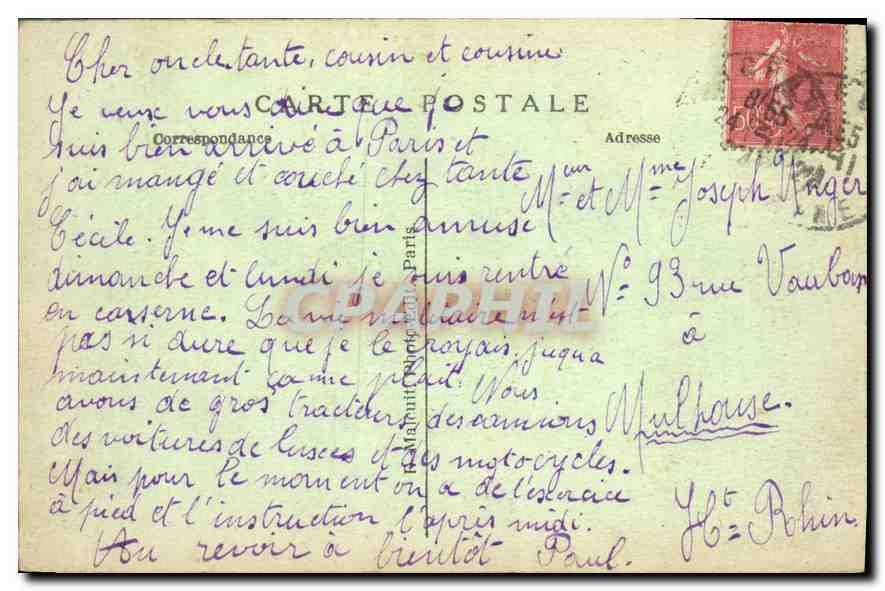 Cher oncle tante, cousin et cousine
Je veux vous dire que je
suis bien arrivé à Paris et
j'ai mangé et couché chez tante
Cécile. Je me suis bien amuse
dimanche et lundi je suis rentré
en caserne. La vie militaire n'est
pas si dure que je le croyais. juqua
maintenant ça me plait. Nous
avons de gros tracteurs, des camions
des voitures de luxes et des motocycles.
Mais pour le moment on a de l'exercice
à pied et l'instruction l'après midi.
Au revoir à bientôt Paul.
CARTE POSTALE
Correspondance
Adresse
Mr et Mme Joseph Unger
N° 93 rue Vauban
à
Mulhouse.
Ht Rhin
Malcuit, Phot-Edit., Paris
CPAPHIL
50